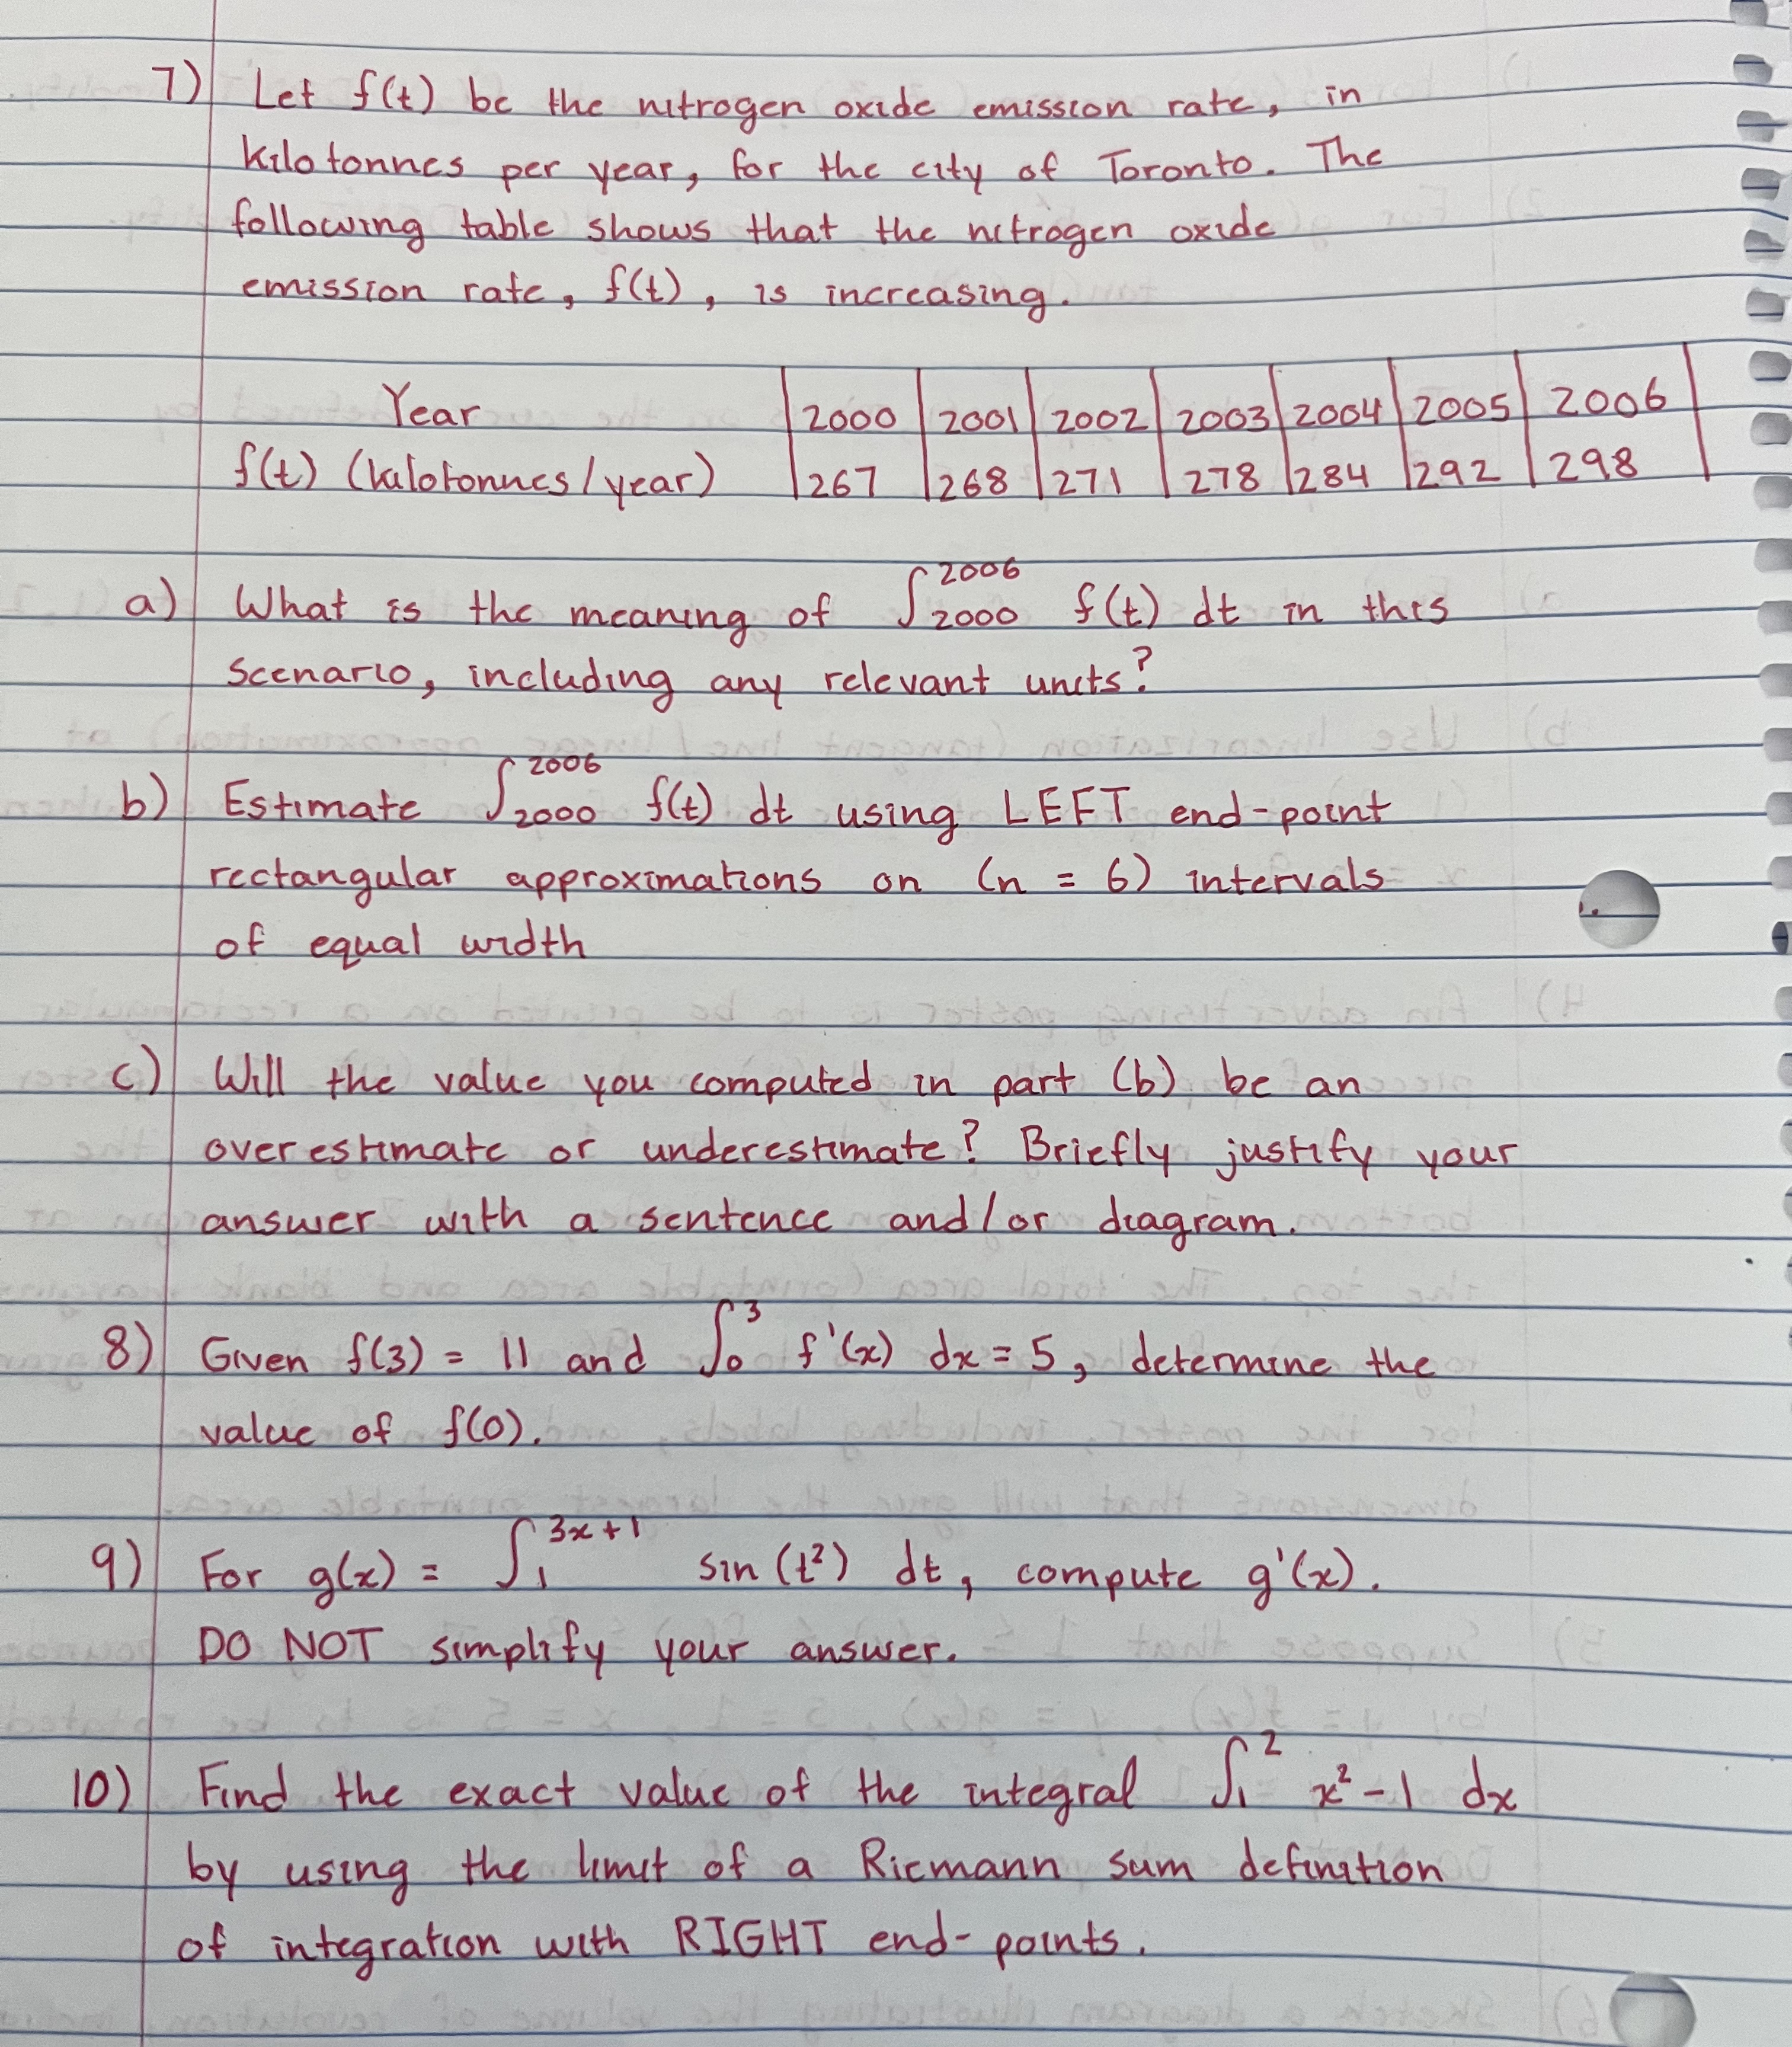 7) Let f(t) be the nitrogen oxide emission rate, in
kilotonnes per year, for the city of Toronto. The
following table shows that the nitrogen oxide
emission rate, f(t), is increasing.
Year | 2000 | 2001 | 2002 | 2003 | 2004 | 2005 | 2006
f(t) (kilotonnes/year) | 267 | 268 | 271 | 278 | 284 | 292 | 298
a) What is the meaning of ∫₂₀₀₀²⁰⁰⁶ f(t) dt in this
scenario, including any relevant units?
b) Estimate ∫₂₀₀₀²⁰⁰⁶ f(t) dt using LEFT end-point
rectangular approximations on (n = 6) intervals
of equal width
c) Will the value you computed in part (b) be an
overestimate or underestimate? Briefly justify your
answer with a sentence and/or diagram.
8) Given f(3) = 11 and ∫₀³ f'(x) dx = 5, determine the
value of f(0).
9) For g(x) = ∫₁³ˣ⁺¹ sin(t²) dt, compute g'(x).
DO NOT simplify your answer.
10) Find the exact value of the integral ∫₁² x² - 1 dx
by using the limit of a Riemann sum definition
of integration with RIGHT end-points.